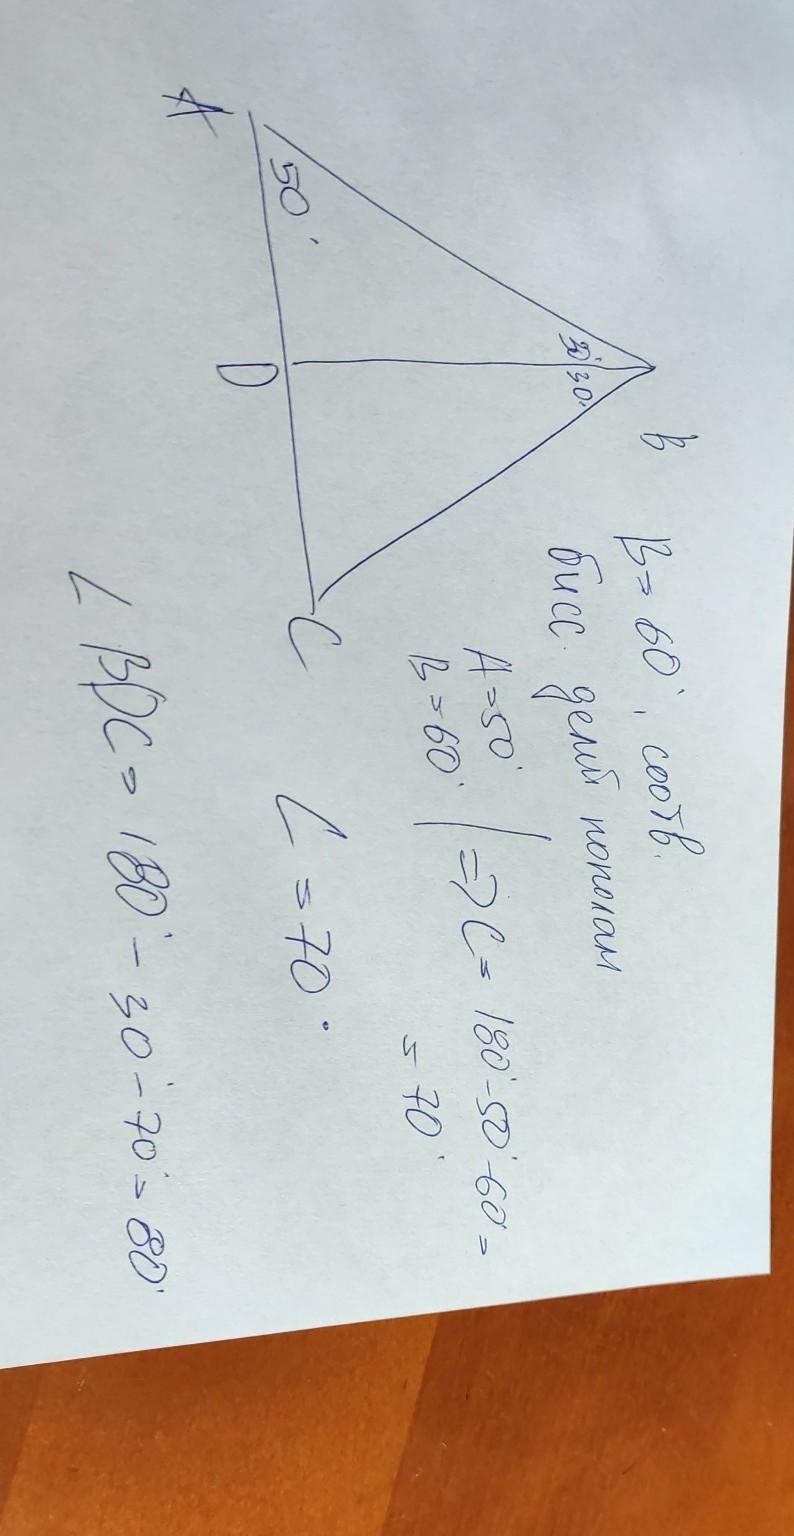 B
B = 60°, соотв.
бисс. делит пополам
30° 30°
A = 50°
B = 60° | => C = 180° - 50° - 60° =
= 70°
50°
A
D
C
C = 70°
∠ BDC = 180° - 30° - 70° = 80°